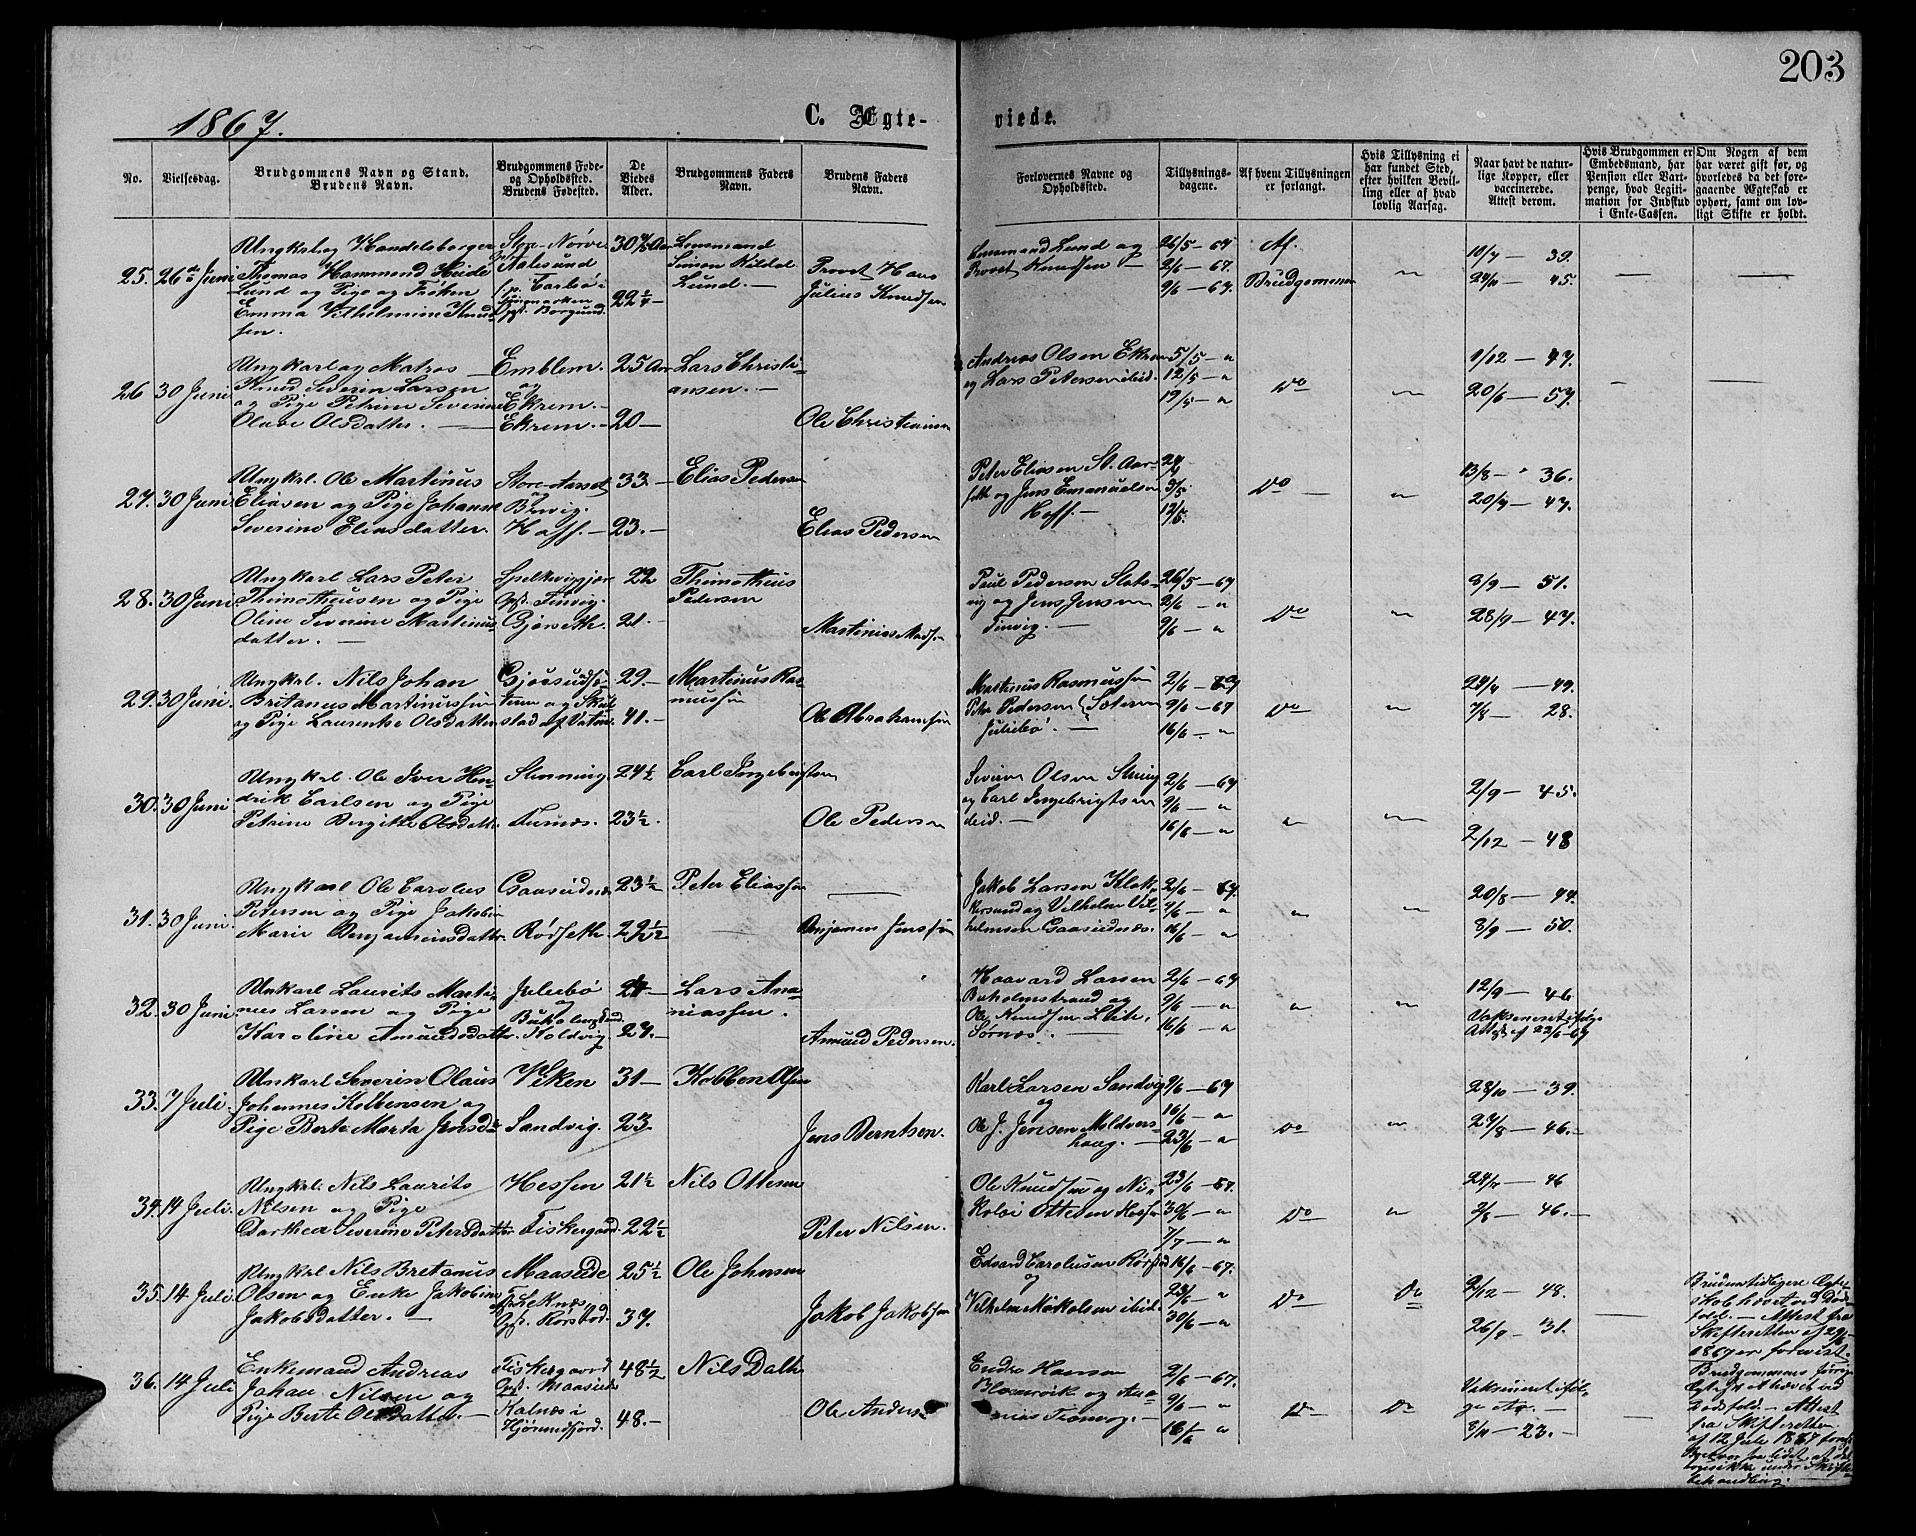 203
1867.
C. Ægte-
viede.
No.
Vielsesdag.
Brudgommens Navn og Stand.
Brudens Navn.
Brudgommens Føde-
og Opholdssted.
Brudens Fødested.
De
Viedes
Alder.
Brudgommens Faders
Navn.
Brudens Faders
Navn.
Forlovernes Navne og
Opholdssted.
Tillysnings-
dagene.
Af hvem Tillysningen
er forlangt.
Hvis Tillysning ei
har fundet Sted,
efter hvilken Bevil-
ling eller af hvad
lovlig Aarsag.
Naar havt de natur-
lige Kopper, eller
vaccinerede.
Attest derom.
Hvis Brudgommen er
Embedsmand, har
Pension eller Vart-
penge, hvad Legiti-
mation for Indskud
i Enke-Cassen.
Om Nogen af dem
har været gift før, og
hvorledes da det fore-
gaaende Ægteskab er
ophørt, samt om lov-
ligt Skifte er holdt.
25.
Thomas Hammond Heide
Lund og Pige og Frøken
Emma Vilhelmine Knud-
sen.
Aalesund
Borgund
22¼
Lensmand
Simon Kildal
Lund.
Provst Hans
Julius Knudsen
Lensmand Lund og
Provst Knudsen
26/5 - 67
2/6 - 67.
9/6 - 67.
Af
Brudgommen
10/7 - 39.
45.
26 30 Juni
Ungkarl og Matros
Knud Severin Larsen
og Pige Petrine Severine
Olave Olsdatter.
Emblem.
og
Ekrem.
Ekrem.
25 Aar
20
Lars Christi-
ansen.
Ole Christiansen
Andreas Olsen Ekrem
og Lars Petersen ibid.
5/5 - "
12/5 - "
19/5 - "
Do
1/12 - 47.
20/6 - 57.
27. 30 Juni
Ungkrl. Ole Martinus
Eliasen og Pige Johanne
Severine Eliasdatter.
og
Hoff.
33.
23.
Elias Pedersen
Elias Pedersen
Peter Eliasen St. Aar-
seth og Jens Emanuelsen
Hoff.
12/5.
Do
13/8 - 36.
20/7 - 47.
28. 30 Juni
Ungkarl Lars Peter
Thimotheusen og Pige
Oline Severine Martinus-
datter.
Gjørseth.
22
21.
Thimotheus
Pedersen
Martinus Madsen
Paul Pedersen Slate-
vig og Jens Jensen
26/5 - 67
2/6 - "
9/6 - "
Do
3/9 - 51.
28/9 - 47.
29. 30 Juni
Ungkarl. Nils Johan
Britanus Martinussen
og Pige Laurenke Olsdatter
29.
41.
Martinus Ras-
mussen
Ole Abrahamsen
Martinus Rasmussen
Peter Pedersen Sæteren
Juliebø.
2/6 - 67
9/6 - 67
16/6 - "
Do
49.
7/8 - 28.
30. 30 Juni
Ungkarl. Ole Iver Hen-
drik Carlsen og Pige
Petrine Bergitte Olsdatter
Slinning.
24½
23½.
Carl Ingebrigtsen
Ole Pedersen
Severin Olsen Slining
og Carl Ingebrigtsen
ibid.
2/6 - 67
9/6 - "
16/6 - "
2/9 - 45.
2/12 - 48
31. 30 Juni
Ungkarl Ole Carolus
Petersen og Pige Jakobine
Marie Benjaminsdatter.
Gaaseidnes
Rødseth.
23½
29½
Peter Eliassen
Benjamin Jenssen
Jakob Larsen Klok-
kersund og Vilhelm Vil-
helmsen Gaaseidnæs.
2/6 - 67.
9/6 - "
16/6 - "
20/8 - 44.
8/9 - 50.
32. 30 Juni
Unkarl Laurits Marti-
nus Larsen og Pige
Karoline Amundsdatter.
Juliebø
og
Koldvig.
27.
Lars Ana-
niassen.
Amund Pedersen.
Haavard Larsen
Buholmstrand og
Ole Knudsen Liih.
Sørnæs.
2/6 - 67
9/6 - "
16/6 - "
12/9 - 46
Attest af 22/6 - 67
33. 7 Juli.
Unkarl Severin Olaus
Johannes Kolbensen og
Pige Berte Marta Jensdr
Viken
Sandvig.
31
23.
Kolben Olsen
Jens Berntsen.
Karl Larsen Sandvig
og
Ole J. Jensen Moldvers-
haug.
9/6 - 67
16/6 - "
23/6 - "
Do
39.
27/8 - 46.
34. 14 Juli.
Ungkrl. Nils Laurits
Nilsen og Pige
Dorthea Severine Petersdatter
Hessen
Fiskergaard
21½
22½
Nils Ottesen
Peter Nilsen.
Ole Knudsen og Ni-
kolai Ottesen Hessen
23/6 - 67.
30/6 - "
7/7 - "
Do
46
3/8 - 46.
35. 14 Juli
Ungkrl Nils Bretanus
Olsen og Enke Jakobine
Jakobsdatter.
Maaseide
25½
37.
Ole Johnsen
Jakob Jakobsen
og
16/6 - 67.
23/6 - "
30/6 - "
Do
Do
2/12 - 48.
26/9 - 31.
Brudens tidligere Ægte-
skab hævet ved Døds-
fald. - Attest fra
Skifteretten
1867 er forevist.
36. 14 Juli
Enkemand Andreas
Johan Nilsen og
Pige Berte Olsdatter.
Fiskergaard
Maaseide
Kalnæs i
Hjørundfjord.
48½
48.
Nils Dalh
Ole Anders
Endre Hansen
2/6 - 67.
9/6 - "
16/6 "
Do
Do
8/11 - 23.
Brudgommens forrige
Ægteskab hævet ved
Dødsfald - Attest
fra Skifteretten
af 12 Juli 1867
behandling.